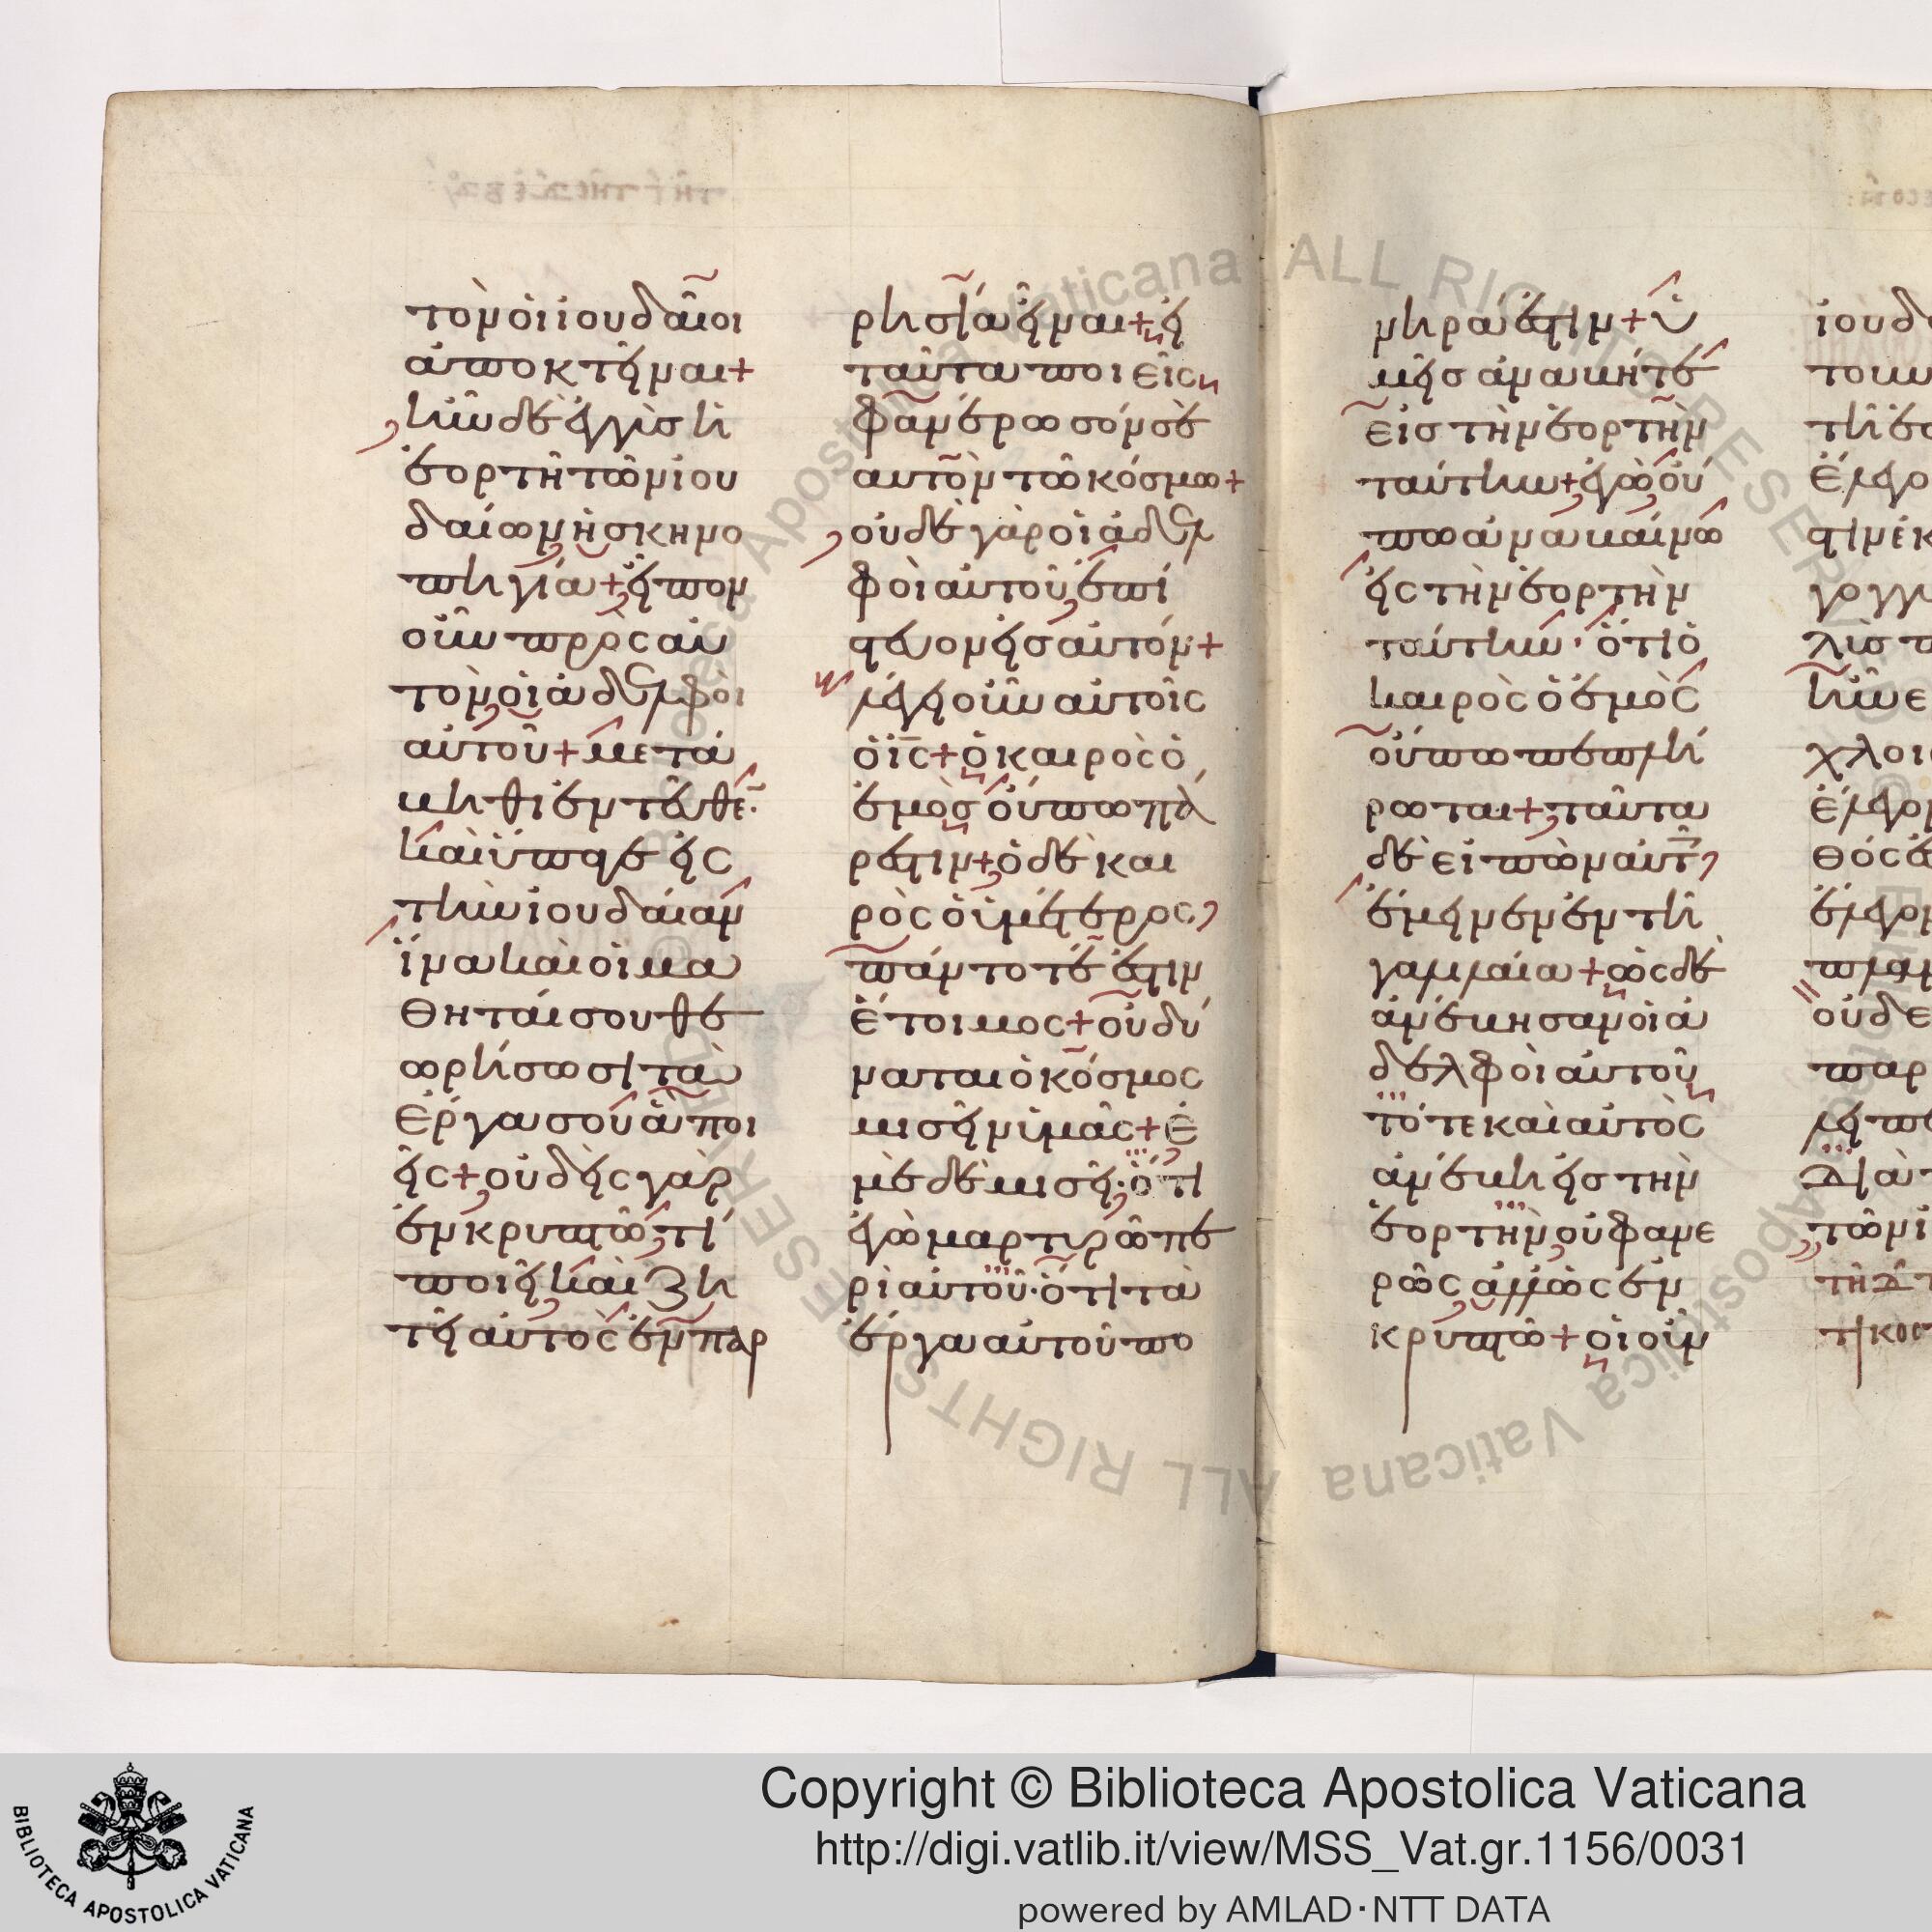 τὸν οἱ ἰουδαῖοι
ἀποκτεῖναι+
ἦν δὲ ἐγγὺς ἡ
ἑορτὴ τῶν ἰου
δαίων ἡ σκηνο
πηγία+ εἶπον
οὖν πρὸς αὐ
τὸν οἱ ἀδελφοὶ
αὐτοῦ+ μετά
βηθι ἐντεῦθε̅·
καὶ ὕπαγε εἰς
τὴν ἰουδαίαν
ἵνα καὶ οἱ μα
θηταί σου θε
ωρήσωσι τὰ
ἔργα σου ἃ ποι
εῖς+ οὐδεὶς γὰρ
ἐν κρυπτῶ τί
ποιεῖ καὶ ζη
τεῖ αὐτὸς ἐν παρ
ρησία εἶναι+ εἰ
ταῦτα ποιεῖς
φανέρωσον σὲ
αυτὸν τῶ κόσμω+
οὐδὲ γὰρ οἱ ἀδελ
φοὶ αὐτοῦ ἐπί
στευον εἰς αὐτόν+
λέγει οὖν αὐτοῖς
ὁ ι̅ς+ ὁ καιρὸς ὁ
ἐμὸς οὔπω πά
ρεστιν+ ὁ δὲ και
ρὸς ὁ ὑμέτερος
πάντοτέ ἐστιν
ἕτοιμος+ οὐ δύ
ναται ὁ κόσμος
μισεῖν ὑμᾶς+ ἐ
μὲ δὲ μισεῖ· ὅτι
ἐγὼ μαρτυρῶ πε
ρὶ αὐτοῦ· ὅτι τὰ
ἔργα αὐτοῦ πο
νηρά ἐστιν+ ὑ
μεῖς ἀνάβητε
εἰς τὴν ἑορτὴν
ταύτην+ ἐγὼ οὔ
πω ἀναβαίνω
εἰς τὴν ἑορτὴν
ταύτην· ὅτι ὁ
καιρὸς ὁ ἐμὸς
οὔπω πεπλή
ρωται+ ταῦτα
δὲ εἰπὼν αὐτ
ἔμεινεν ἐν τῆ
γαλιλαία+ ὡς δὲ
ἀνέβησαν οἱ ἀ
δελφοὶ αὐτοῦ
τότε καὶ αὐτὸς
ἀνέβη εἰς τὴν
ἑορτὴν οὐ φανε
ρῶς ἀλλ' ὡς ἐν
κρυπτῶ+ οἱ οὖν
Copyright © Biblioteca Apostolica Vaticana
http://digi.vatlib.it/view/MSS_Vat.gr.1156/0031
powered by AMLAD·NTT DATA
BIBLIOTECA APOSTOLICA VATICANA